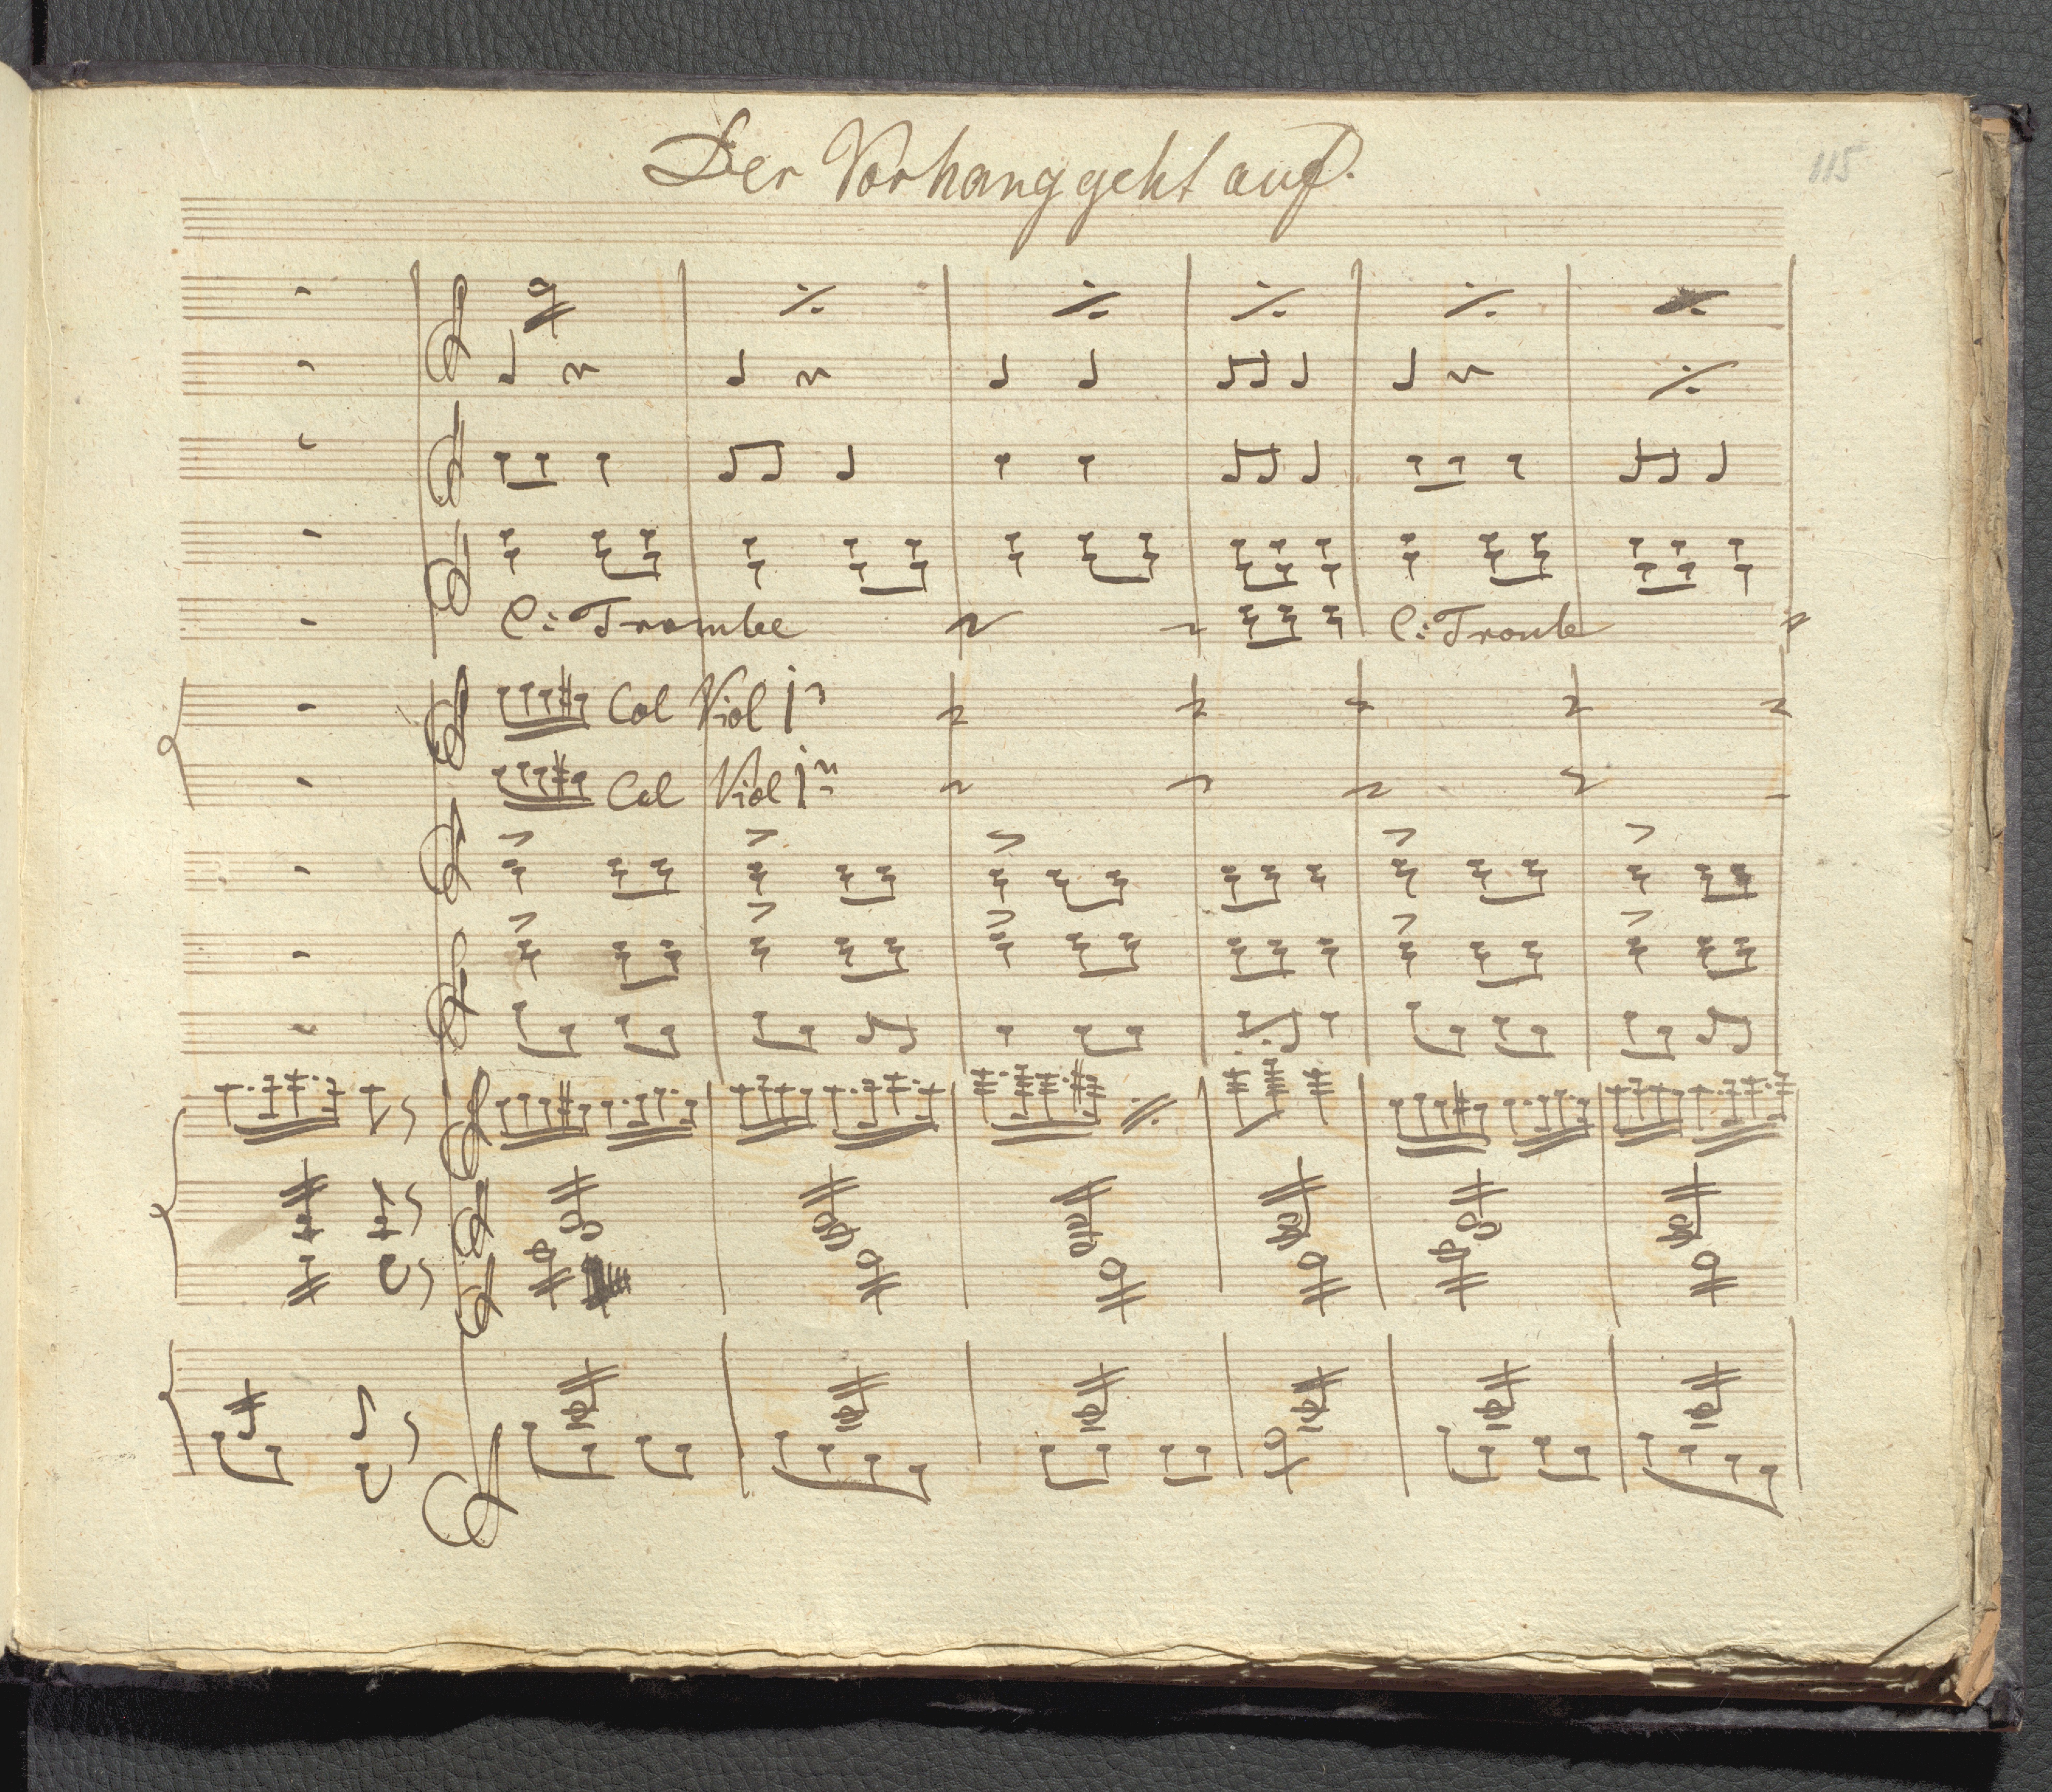 Der Vorhang geht auf.
115
C: Trombe
C: Trombe
Col Viol 1º
Col Viol 1º